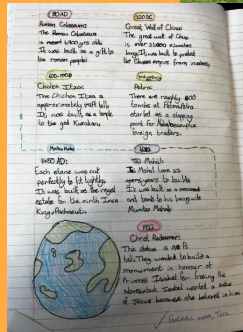 80 AD
Roman Colosseum:
The Roman Colosseum
is most 1,900 yrs old.
It was built as a gift to
the roman people
220 BC
Great Wall of China:
The great wall of China
is over 21,000 kilometres
long. It was built to protect
the Chinese empire from
600-
Chichen Itza:
The Chichen Itza is
approximately tall.
It was built as a temple
to the god Kukulcan
Petra:
There are roughly 800
tombs at Petra. Petra
started as a
point for
foreign traders.
Machu Picchu
1450 AD:
Each stone was cut
perfectly to fit tightly.
It was built as the royal
estate for the ninth Inca
King, Pachacuti.
Taj Mahal:
Taj Mahal took 22
years to build.
It's was built as a monument
and tomb to his wife
Mumtaz Mahal
1922
Christ Redeemer:
The statue is
tall. They wanted to build a
monument in honour of
Princess Isabel for freeing the
slaves but Isabel wanted a statue
of Jesus because she believed in him
Fantastic work, Tara